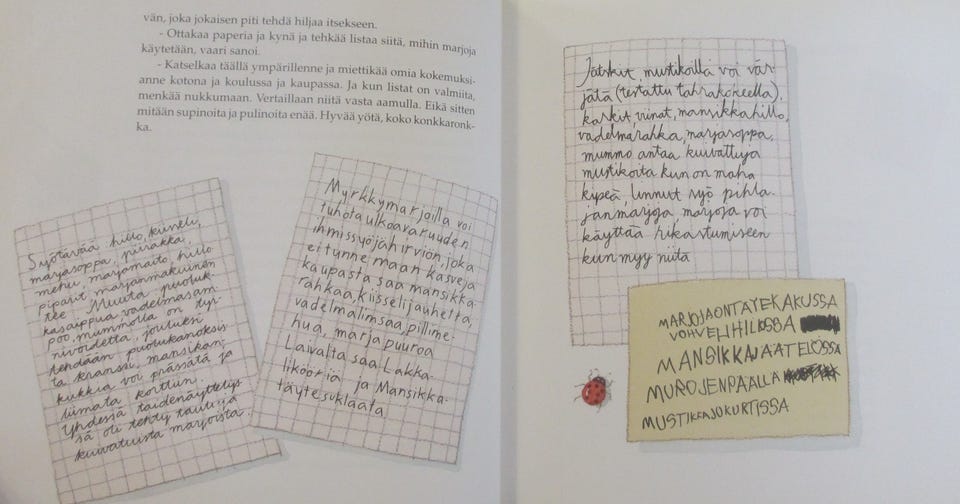 vän, joka jokaisen piti tehdä hiljaa itsekseen.
- Ottakaa paperia ja kynä ja tehkää listaa siitä, mihin marjoja
käytetään, vaari sanoi.
- Katselkaa täällä ympärillenne ja miettikää omia kokemuksi-
anne kotona ja koulussa ja kaupassa. Ja kun listat on valmiita,
menkää nukkumaan. Vertaillaan niitä vasta aamulla. Eikä sitten
mitään supinoita ja pulinoita enää. Hyvää yötä, koko konkkaronk-
ka.
Syötävää hillo, kiisseli,
marjasoppa, piirakka,
mehu, marjamaito, hillo
piparit, marjanmakuinen
tee Muuta puoluk-
kasaippua vadelmasam-
poo, mummolla on tyr-
nivoidetta, jouluksi
tehdään puolukanoksis-
ta kranssi, mansikan-
kukkia voi prässätä ja
liimata korttiin.
Yhdessä taidenäyttelys
sä oli tehty tauluja
kuivatuista marjoista.
Myrkkymarjoilla voi
tuhota ulkoavaruuden
ihmissyöjähirviön, joka
ei tunne maan kasveja
kaupasta saa mansikka-
rahkaa, kiisselijauhetta,
vadelmalimsaa, pillime-
hua, marjapuuroa
Laivalta saa Lakka-
likööriä ja Mansikka-
täytesuklaata
Jätskit, mustikoilla voi vär-
jätä (testattu tahrakokeella),
karkit, viinat, mansikkahillo,
vadelmarahka, marjasoppa,
mummo antaa kuivattuja
mustikoita kun on maha
kipeä, linnut syö pihla-
janmarjoja, marjoja voi
käyttää rikastumiseen
kun myy niitä
MARJOJA ON TÄTEKAKUSSA
VOHVELIHILLOSSA
MANSIKKAJÄÄTELÖSSÄ
MUROJEN PÄÄLLÄ
MUSTIKKAJUKURTISSA